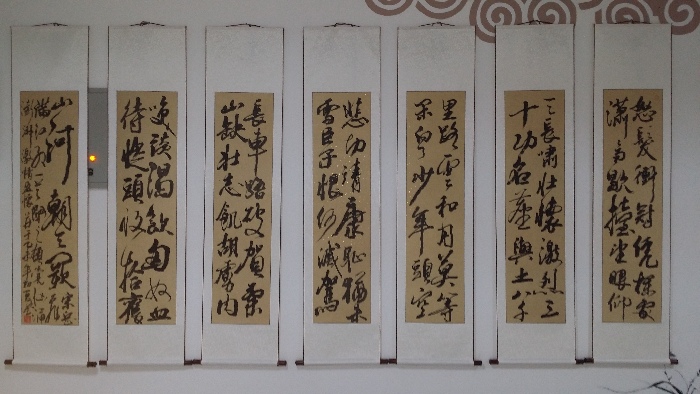 怒髮衝冠凭欄處
瀟雨歇擡望眼仰
天長嘯壯懷激烈三
十功名塵與土八千
里路雲和月莫等
閑白了少年頭空
悲切靖康恥猶未
雪臣子恨何滅駕
長車踏破賀蘭
山缺壯志飢胡虜肉
笑談渴飲匈奴血
待從頭收拾舊
山河朝天闕 宋岳飛
滿江紅